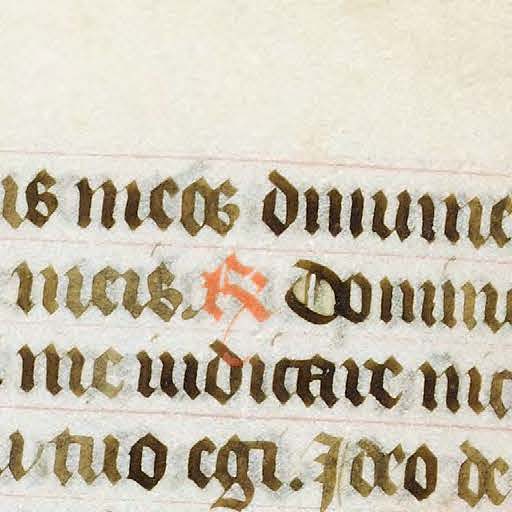 us meos dinume
meis. R Domin
me iudicare nic
u tuo egi. Ideo de